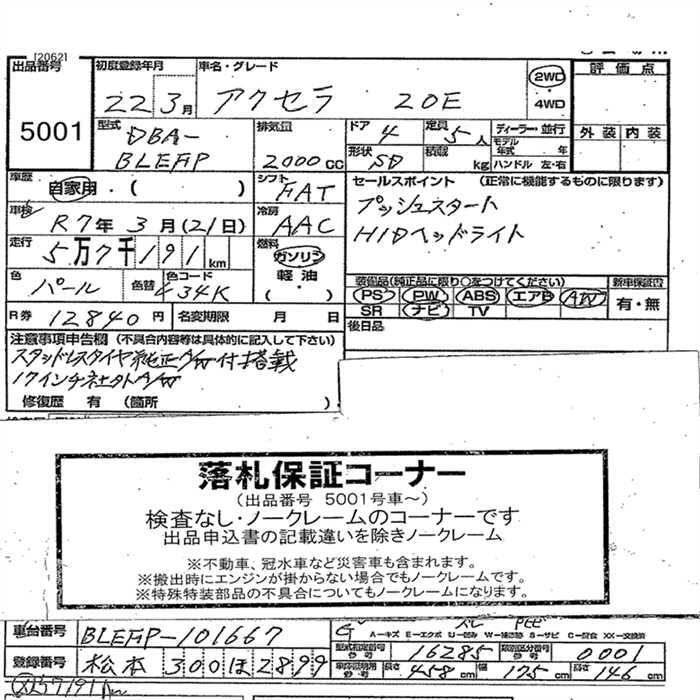 [2062]
出品番号 初度登録年月 車名・グレード 2WD 評価点
5001 22年3月 アクセラ 20E 4WD
型式 排気量 ドア 定員 ディーラー・並行 外装 内装
DBA- 4 5人 モデル年式 年
BLEFP 2000cc 形状 SD 積載 kg ハンドル 左・右
車歴 自家用・( ) シフト FAT セールスポイント (正常に機能するものに限ります)
車検 R7年3月(21日) 冷房 AAC プッシュスタート
走行 5万7千191km 燃料 ガソリン HIDヘッドライト
軽油
色 パール 色替 色コード 34K ( ) 装備品(純正品に限り○をつけてください) 新車保証書
PS PW ABS エアB AW 有・無
R券 12840円 名変期限 月 日 SR ナビ TV
注意事項申告欄 (不具合内容等は具体的に記入して下さい) 後日品
スタッドレスタイヤ純正A/W付搭載
17インチ社外A/W
修復歴 有 (箇所 )
落札保証コーナー
(出品番号 5001号車~)
検査なし・ノークレームのコーナーです
出品申込書の記載違いを除きノークレーム
※不動車、冠水車など災害車も含まれます。
※搬出時にエンジンが掛からない場合でもノークレームです。
※特殊特装部品の不具合についてもノークレームになります。
車台番号 BLEFP-101667 A-キズ E-エクボ U-凹み W-補修跡 S-サビ C-腐食 XX-交換済
型式指定番号 16285 類別区分番号 0001
登録番号 松本 300 ほ 2899 車体証明用参考 長さ 458cm 幅 175cm 高さ 146cm